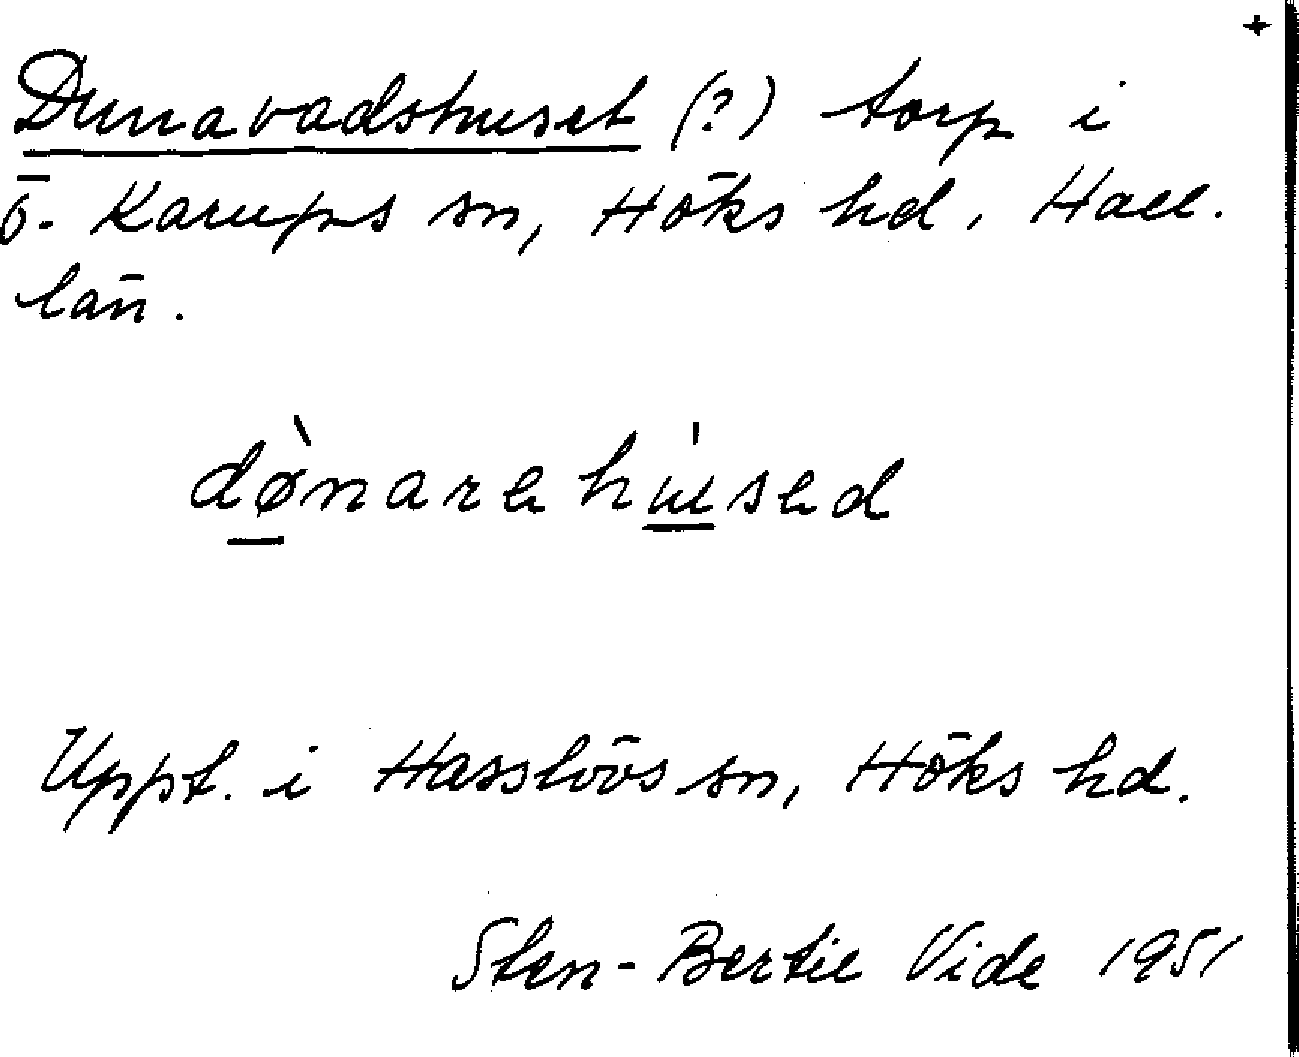 +
Dunavadshuset (?) torp i
Ö. Karups sn, Höks hd, Hall.
län.
dø̀narehúsed
Uppt. i Hasslövs sn, Höks hd.
Sten-Bertil Vide 1951